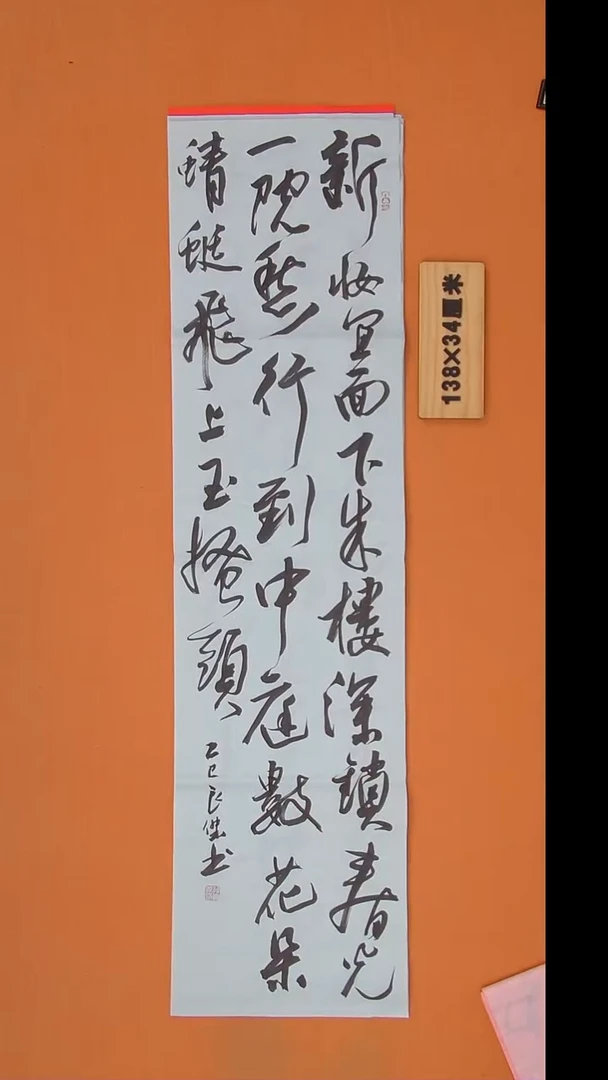 新妝宜面下朱樓深鎖春光
一院愁行到中庭數花朵
蜻蜓飛上玉搔頭
乙巳良傑书
138×34厘米